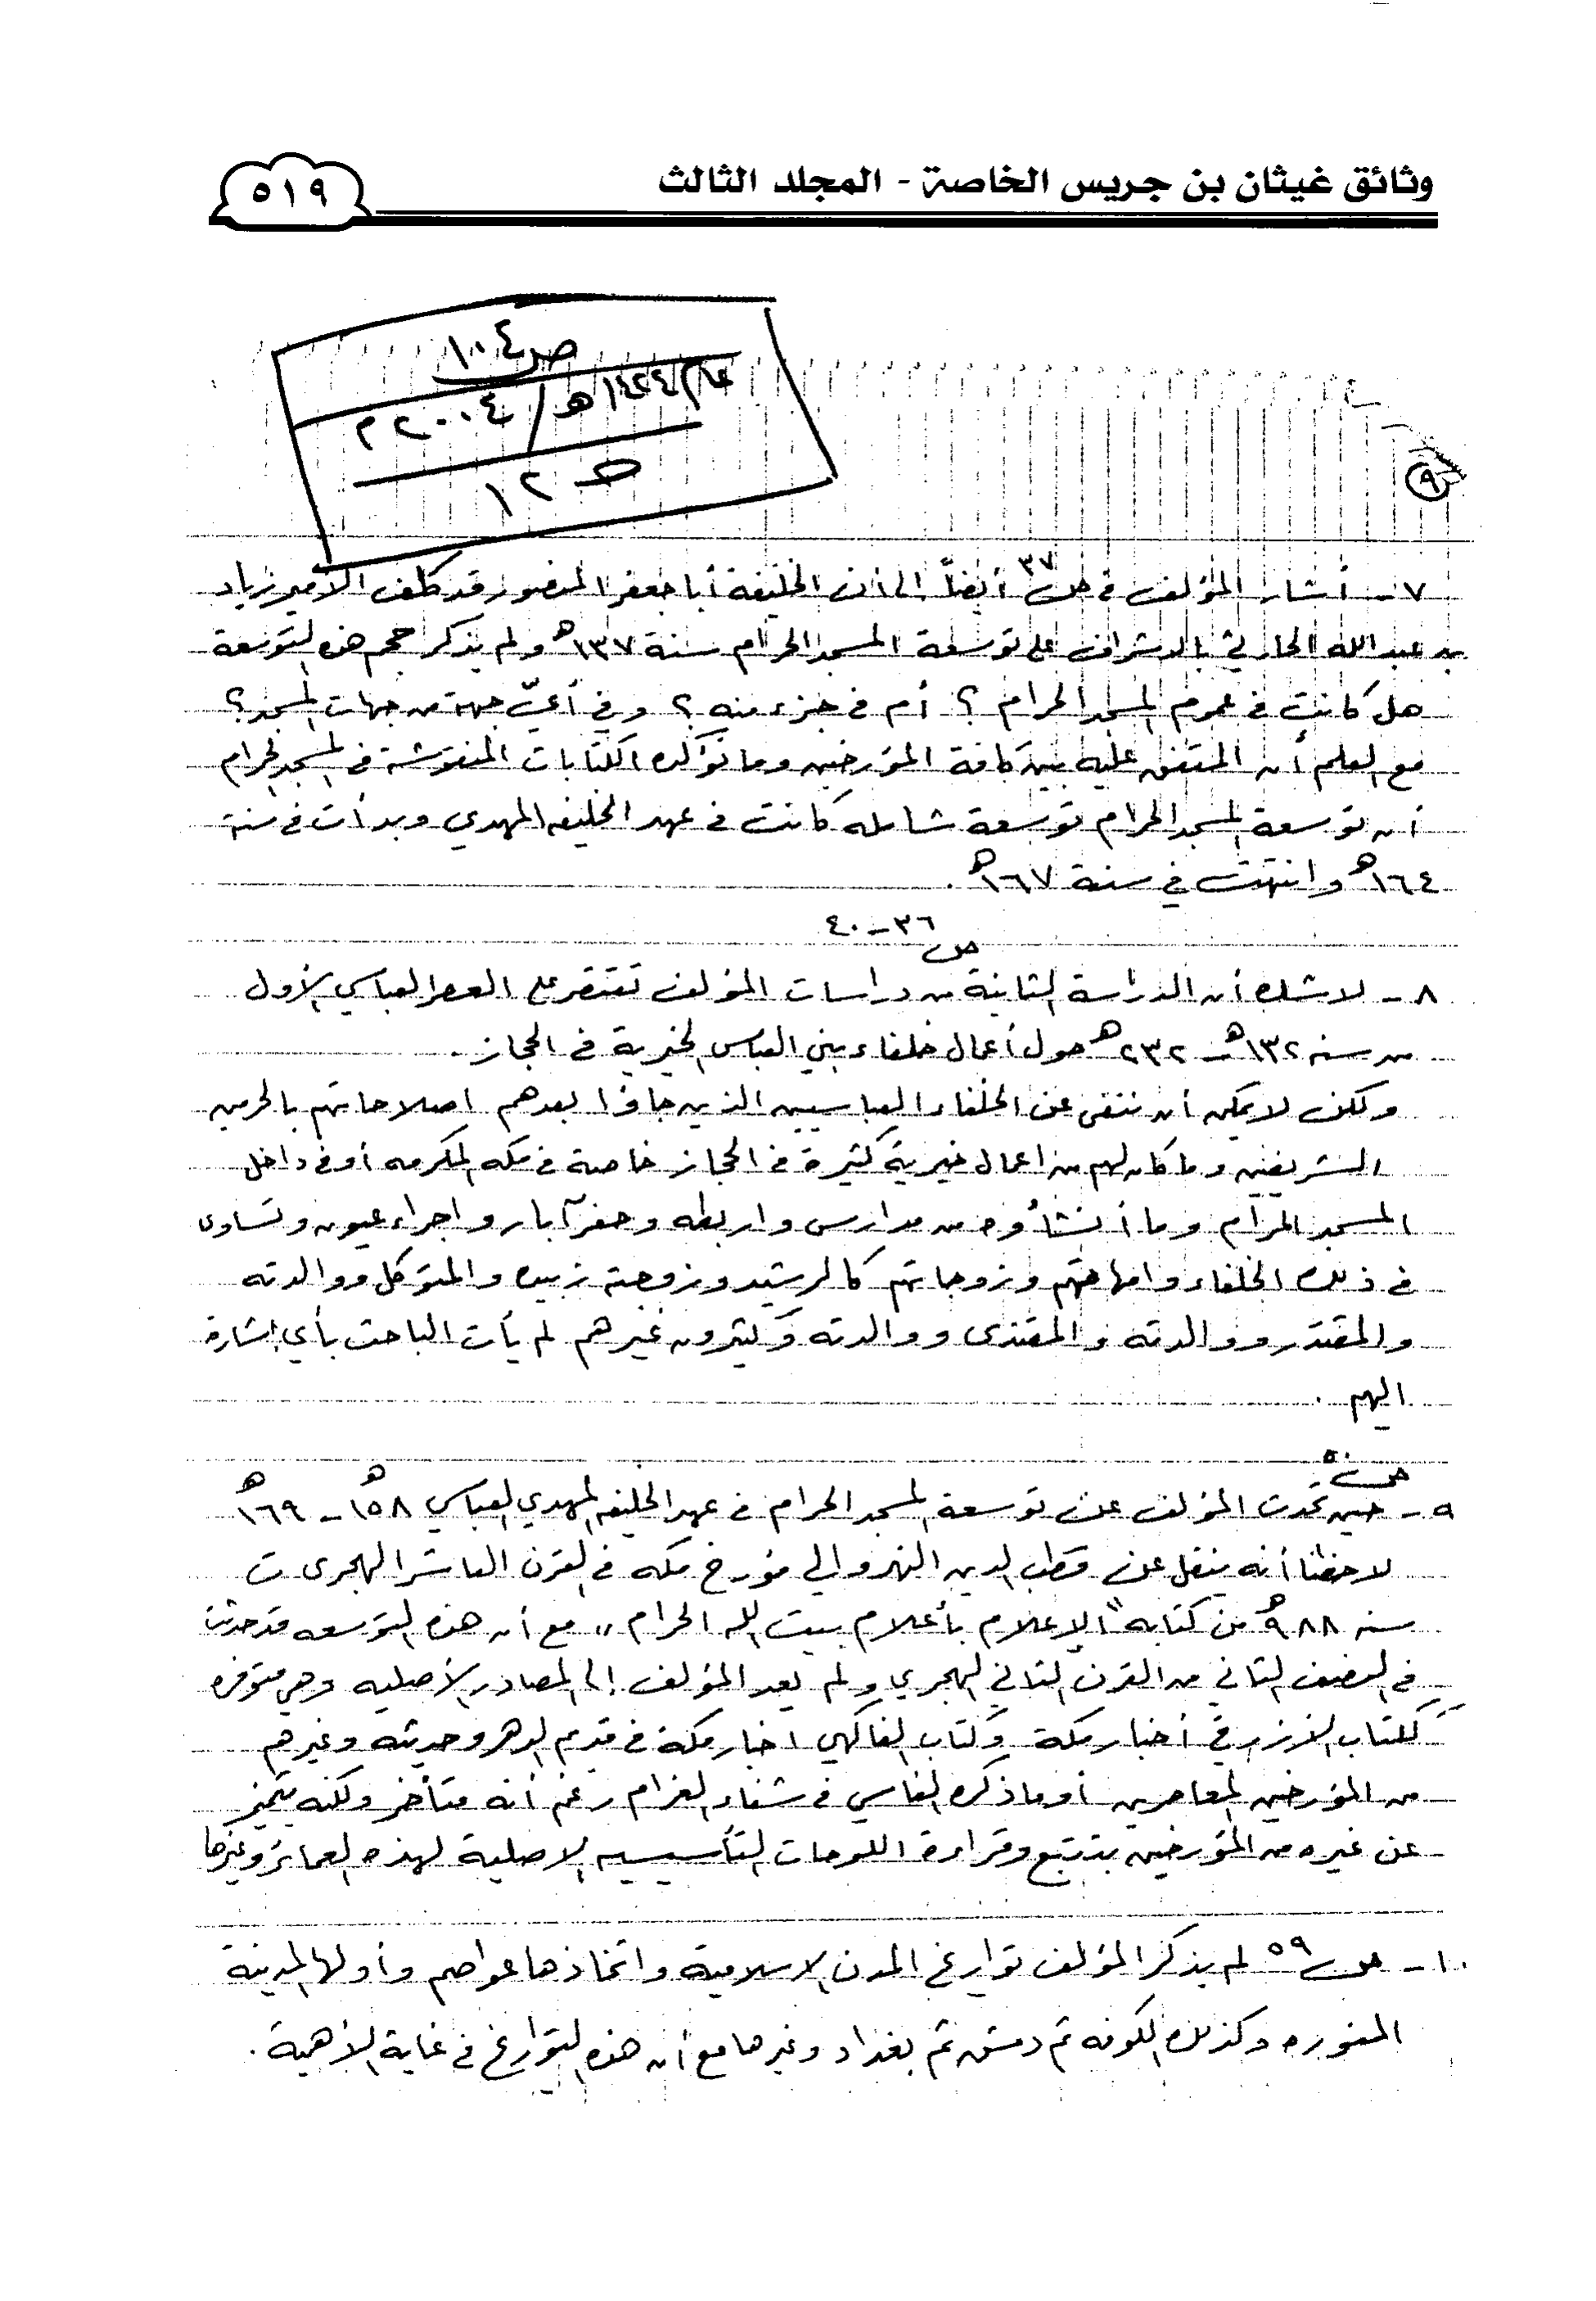 وثائق غيثان بن جريس الخاصة - المجلد الثالث
٥١٩
ص١٠٤
عام ١٤٢٤هـ / ٢٠٠٤م
ص ١٢
٩
٧- أشار المؤلف في ص٣٧ أيضاً إلى أن الخليفة أبا جعفر المنصور قد كلف الأمير زياد
بن عبد الله الحارثي بالاشراف على توسعة المسجد الحرام سنة ١٣٧هـ ولم يذكر حجم هذه التوسعة
هل كانت في عموم المسجد الحرام ؟ أم في جزء منه ؟ وفي أيّ جهة من جهات المسجد ؟
مع العلم أن المتفق عليه بين كافة المؤرخين وما تؤكده الكتابات المنقوشة في المسجد الحرام
أن توسعة المسجد الحرام توسعة شامله كانت في عهد الخليفه المهدي وبدأت في سنة
١٦٤هـ وانتهت في سنة ١٦٧هـ .
ص ٣٦-٤٠
٨- لاشك أن الدراسة الثانية من دراسات المؤلف تقتصر على العصر العباسي الأول
من سنه ١٣٢هـ - ٢٣٢هـ حول أعمال خلفاء بني العباس الخيرية في الحجاز .
ولكن لا يمكن أن ننفى عن الخلفاء العباسيين الذين جاؤا بعدهم اصلاحاتهم بالحرمين
الشريفين وما كان لهم من اعمال خيرية كثيرة في الحجاز خاصة في مكه المكرمه أو في داخل
المسجد الحرام وما أنشأوه من مدارس واربطه وحفر آبار واجراء عيون وتساوى
في ذلك الخلفاء وامهاتهم وزوجاتهم كالرشيد وزوجته زبيده والمتوكل ووالدته
والمقتدر ووالدته والمقتدى ووالدته وكثيرون غيرهم لم يأت الباحث بأي إشارة
اليهم .
ص٥٠
٩- حين تحدث المؤلف عن توسعة المسجد الحرام في عهد الخليفه المهدي العباسي ١٥٨هـ - ١٦٩هـ
لاحظنا أنه ينقل عن قطب الدين النهروالي مؤرخ مكه في القرن العاشر الهجرى ت
سنه ٩٨٨هـ من كتابه "الإعلام بأعلام بيت الله الحرام" مع أن هذه التوسعه قد حدثت
في النصف الثاني من القرن الثاني الهجري ولم يعد المؤلف إلى المصادر الأصليه وهي متوفره
ككتاب الازرقي أخبار مكة وكتاب الفاكهي اخبار مكة في قديم الدهر وحديثه وغيرهم
من المؤرخين المعاصرين أو ما ذكره الفاسي في شفاء الغرام رغم أنه متأخر ولكنه يتميز
عن غيره من المؤرخين بتتبع وقراءة اللوحات التأسيسيه الاصلية لهذه العمائر وغيرها
١٠- ص٥٩ لم يذكر المؤلف تواريخ المدن الاسلامية واتخاذها عواصم وأولها المدينة
المنوره وكذلك الكوفه ثم دمشق ثم بغداد وغيرها مع أن هذه التواريخ في غاية الأهمية .